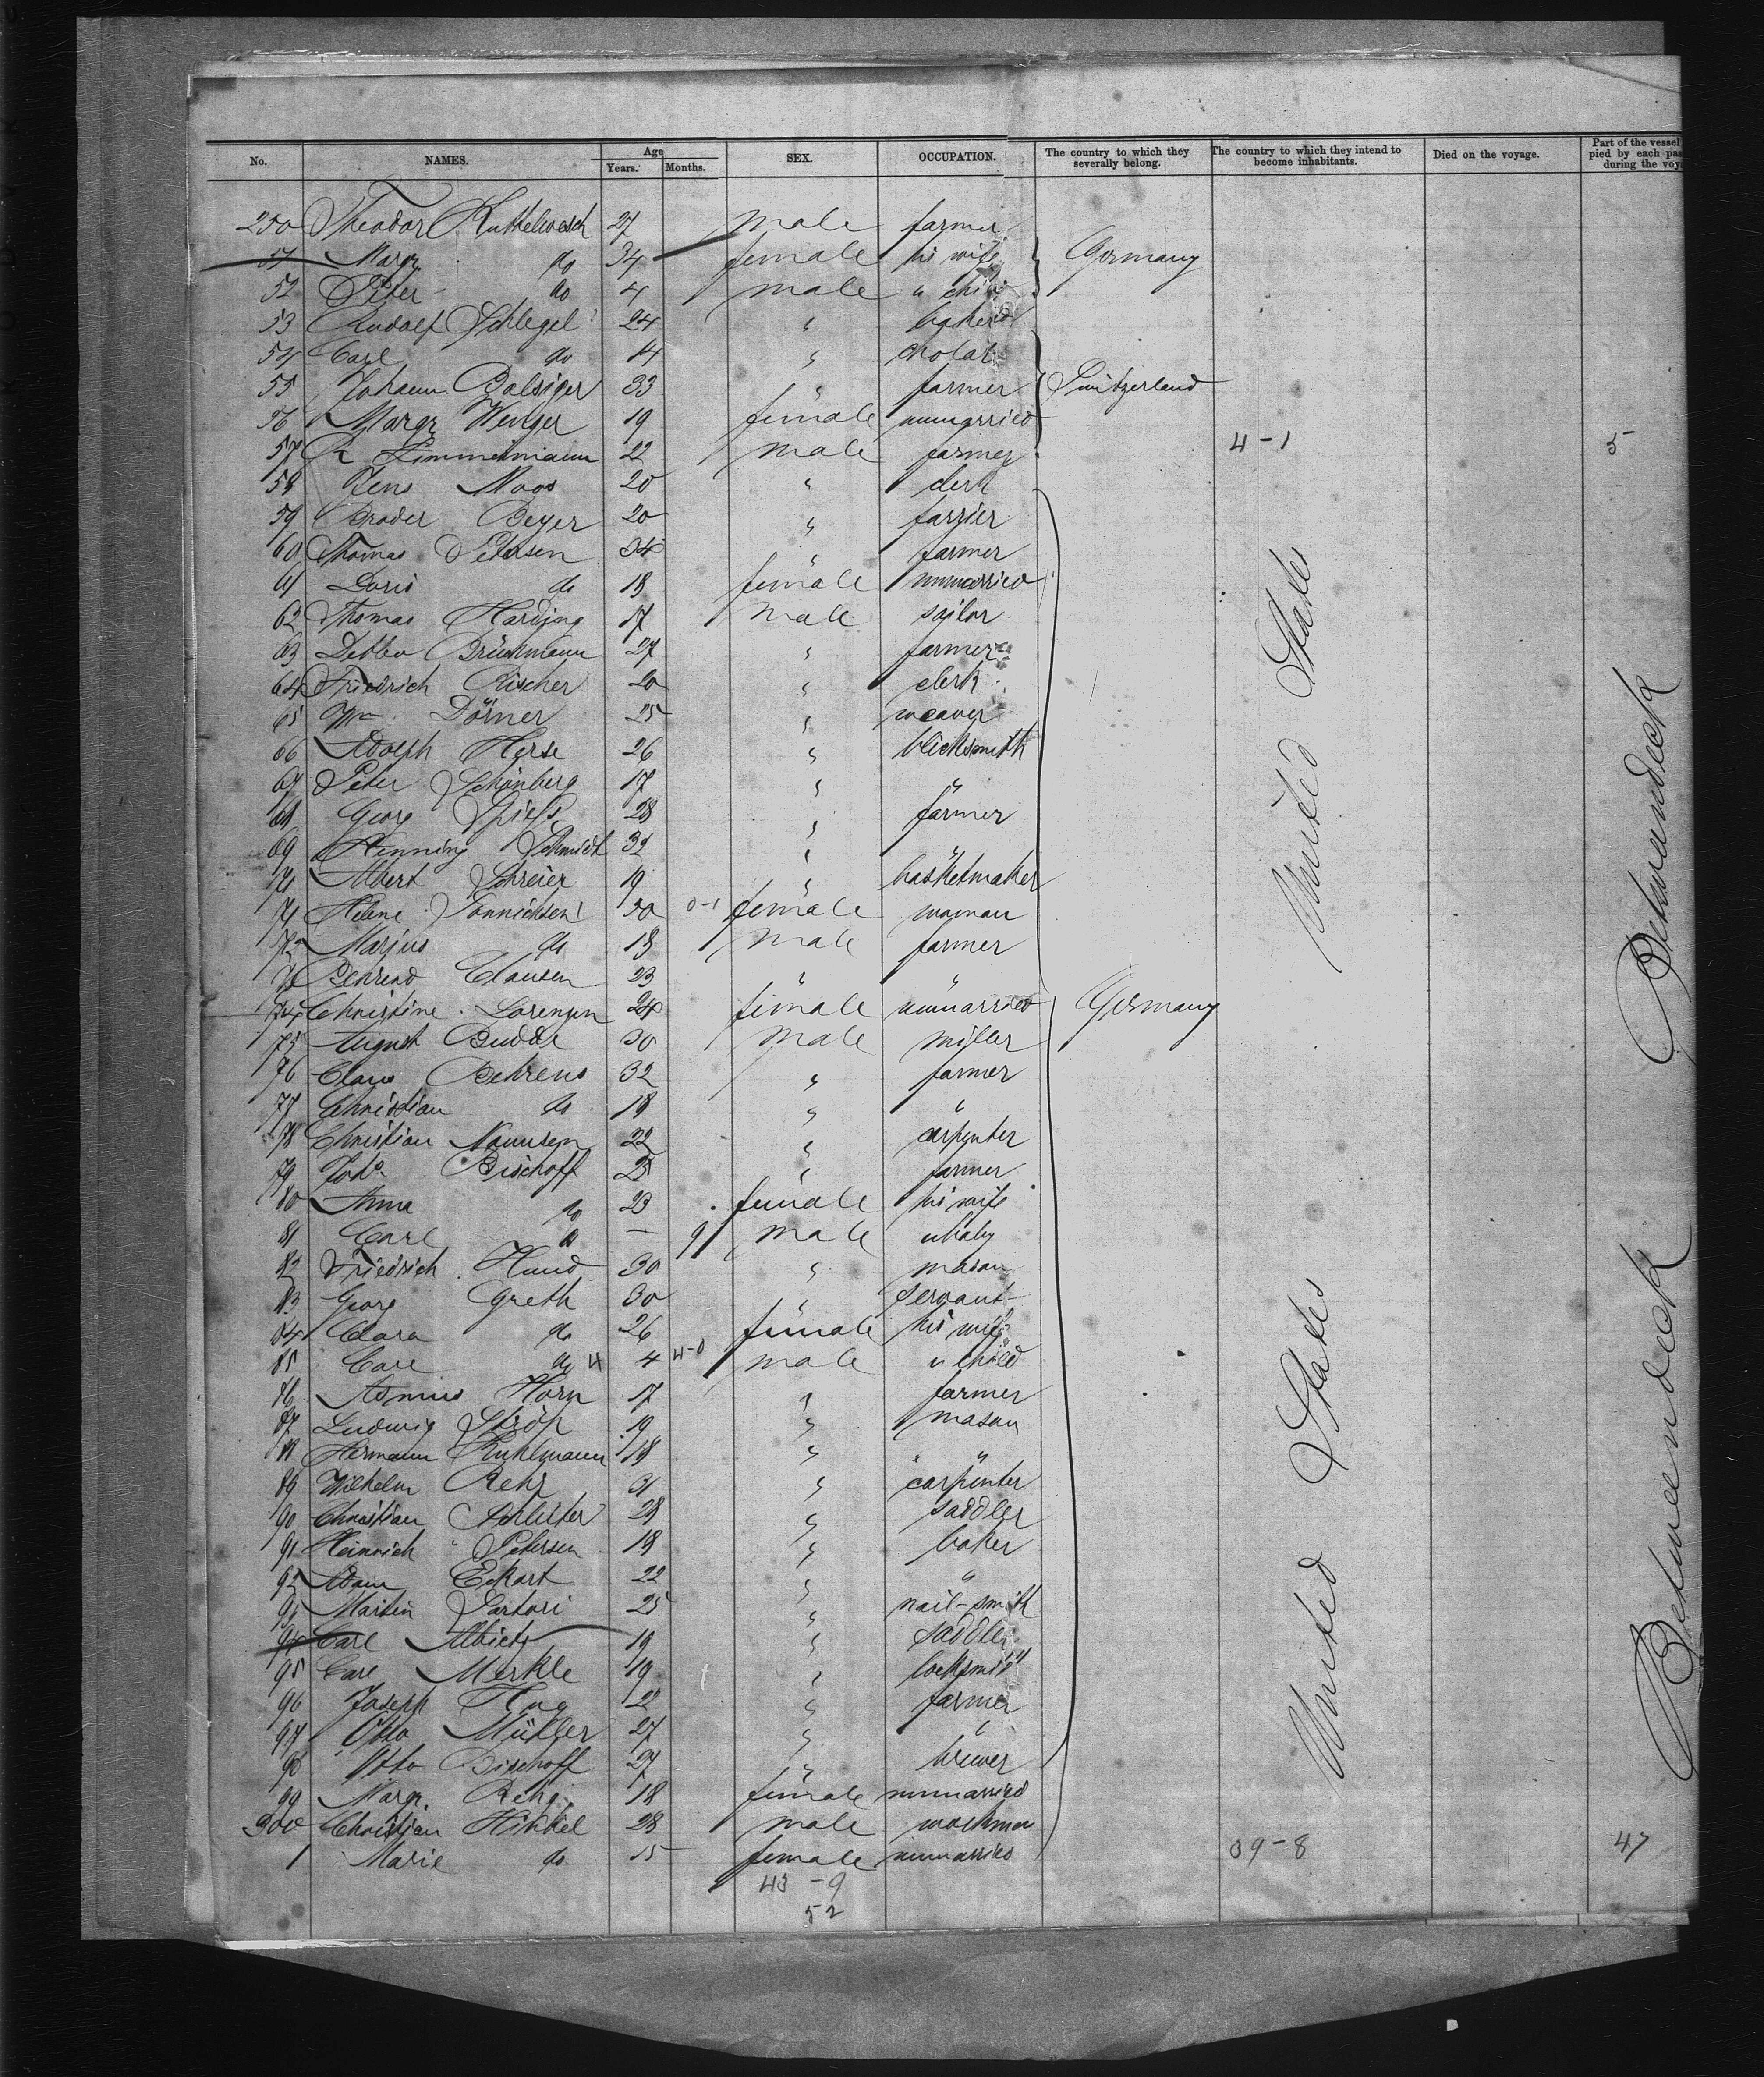 No. NAMES. Age Years. Months. SEX. OCCUPATION. The country to which they severally belong. The country to which they intend to become inhabitants. Died on the voyage. Part of the vessel pied by each pas during the voy
250 Theodor 27 male farmer
51 Margr do 34 female his wife Germany
52 Peter do 4 male a child
53 Rudolf Schlegel 24 " baker
54 Carl do 14 "
55 Johann Balsiger 33 " farmer Switzerland
56 Margr Wenger 19 female unmarried
57 R Zimmermann 22 male farmer 4-1 5
58 Jens Moos 20 " clerk
59 Broder Beyer 20 " farrier
60 Thomas Petersen 34 " farmer
61 Doris do 18 female unmarried
62 Thomas Harding 17 male sailor
63 Detlev Brückmann 27 " farmer
64 Friedrich Rischer 20 " clerk
65 Wm Dörner 25 " weaver
66 Adolph Herse 26 " blicksmith
67 Peter Schönberg 17 " "
68 Georg Spiess 28 " farmer
69 Henning Schmidt 32 " "
70 Albert Schreier 19 " basketmaker
71 Helene Tönnichsen 50 0-1 female woman
72 Marius do 18 male farmer
73 Behrend Clausen 23 " "
74 Christine Lorenzen 24 female unmarried Germany
75 August Budde 30 male miller
76 Claus Behrens 32 " farmer
77 Christian do 18 " "
78 Christian Momsen 22 " carpenter
79 Johs Bischoff 25 " farmer
80 Anna do 23 female his wife
81 Carl do — 9 male a baby
82 Friedrich Hund 30 " mason
83 Georg Greth 30 " servant
84 Clara do 26 female his wife
85 Carl do 4 4 4-0 male a child
86 Asmus Horn 17 " farmer
87 Ludwig 19 " mason
88 Hermann Kuhlmann 18 " "
89 Wilhelm Rehr 31 " carpenter
90 Christian Schlüter 28 " saddler
91 Heinrich Petersen 18 " baker
92 Adam Eckart 22 " "
93 Martin Sartori 25 " nail-smith
94 Carl Albietz 19 " saddler
95 Carl Merkle 19 " locksmith
96 Joseph Hug 22 " farmer
97 Otto Müller 27 " "
98 Otto Bischoff 27 " brewer
99 Margr. 18 female unmarried
300 Christian Hikkel 28 male workman
1 Marie do 15 female unmarried 39-8 47
43 - 9
52
United States
United States
Betweendeck
Betweendeck